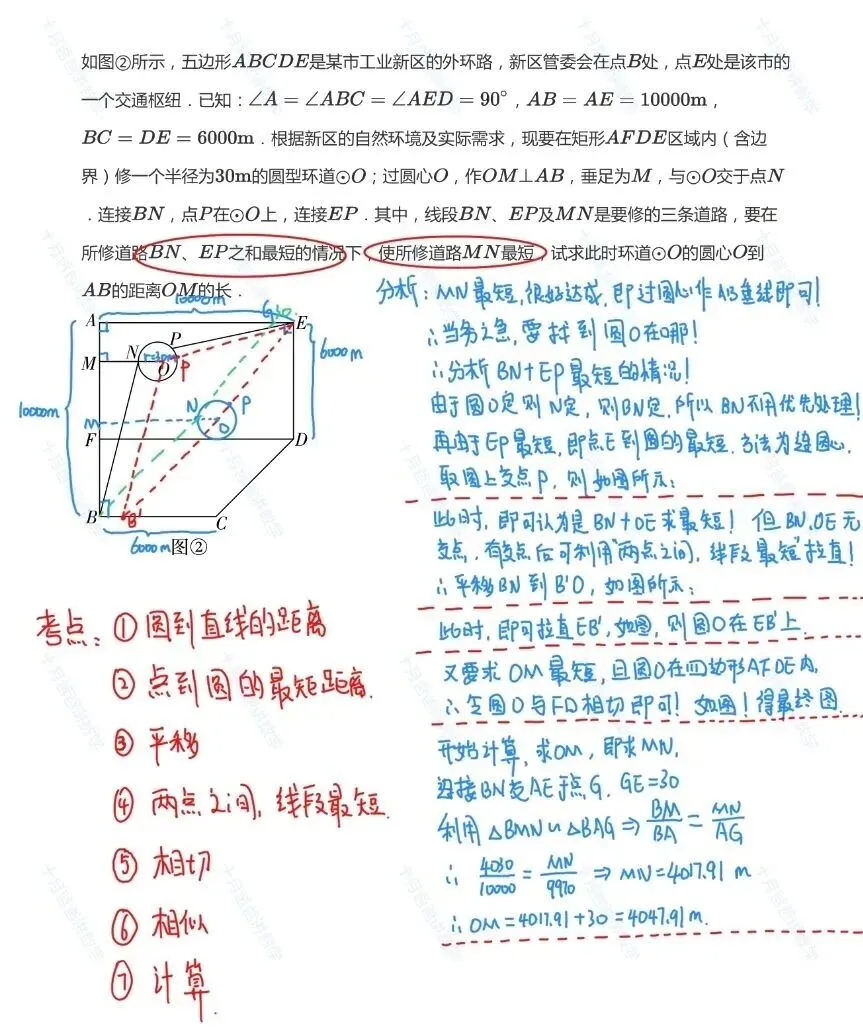 如图②所示，五边形ABCDE是某市工业新区的外环路，新区管委会在点B处，点E处是该市的
一个交通枢纽．已知：∠A＝∠ABC＝∠AED＝90°，AB＝AE＝10000m，
BC＝DE＝6000m．根据新区的自然环境及实际需求，现要在矩形AFDE区域内（含边
界）修一个半径为30m的圆型环道⊙O；过圆心O，作OM⊥AB，垂足为M，与⊙O交于点N
．连接BN，点P在⊙O上，连接EP．其中，线段BN、EP及MN是要修的三条道路，要在
所修道路BN、EP之和最短的情况下，使所修道路MN最短，试求此时环道⊙O的圆心O到
AB的距离OM的长．
10000m
A
G
30
E
P
M
N
r=30m
O
P
6000m
10000m
N
P
M
O
F
D
B
B'
C
6000m
图②
分析：MN最短，很好达成，即过圆心作AB垂线即可！
∴当务之急，要找到圆O在哪！
∴分析BN+EP最短的情况！
由于圆O定则N定，则BN定，所以BN不用优先处理！
再由于EP最短，即点E到圆的最短，方法为连圆心，
取圆上交点P，则如图所示：
此时，即可认为是BN+OE求最短！但BN、OE无
交点，有交点后可利用“两点之间，线段最短”拉直！
∴平移BN到B'O，如图所示：
此时，即可拉直EB'，如图，则圆O在EB'上．
又要求OM最短，且圆O在四边形AFDE内，
∴至圆O与FD相切即可！如图！得最终图．
开始计算，求OM，即求MN，
连接BN交AE于点G，GE=30
利用△BMN∽△BAG⇒BM/BA=MN/AG
∴4030/10000=MN/9970⇒MN=4017.91 m
∴OM=4017.91+30=4047.91m.
考点：①圆到直线的距离
②点到圆的最短距离.
③平移
④两点之间，线段最短.
⑤相切
⑥相似
⑦计算.